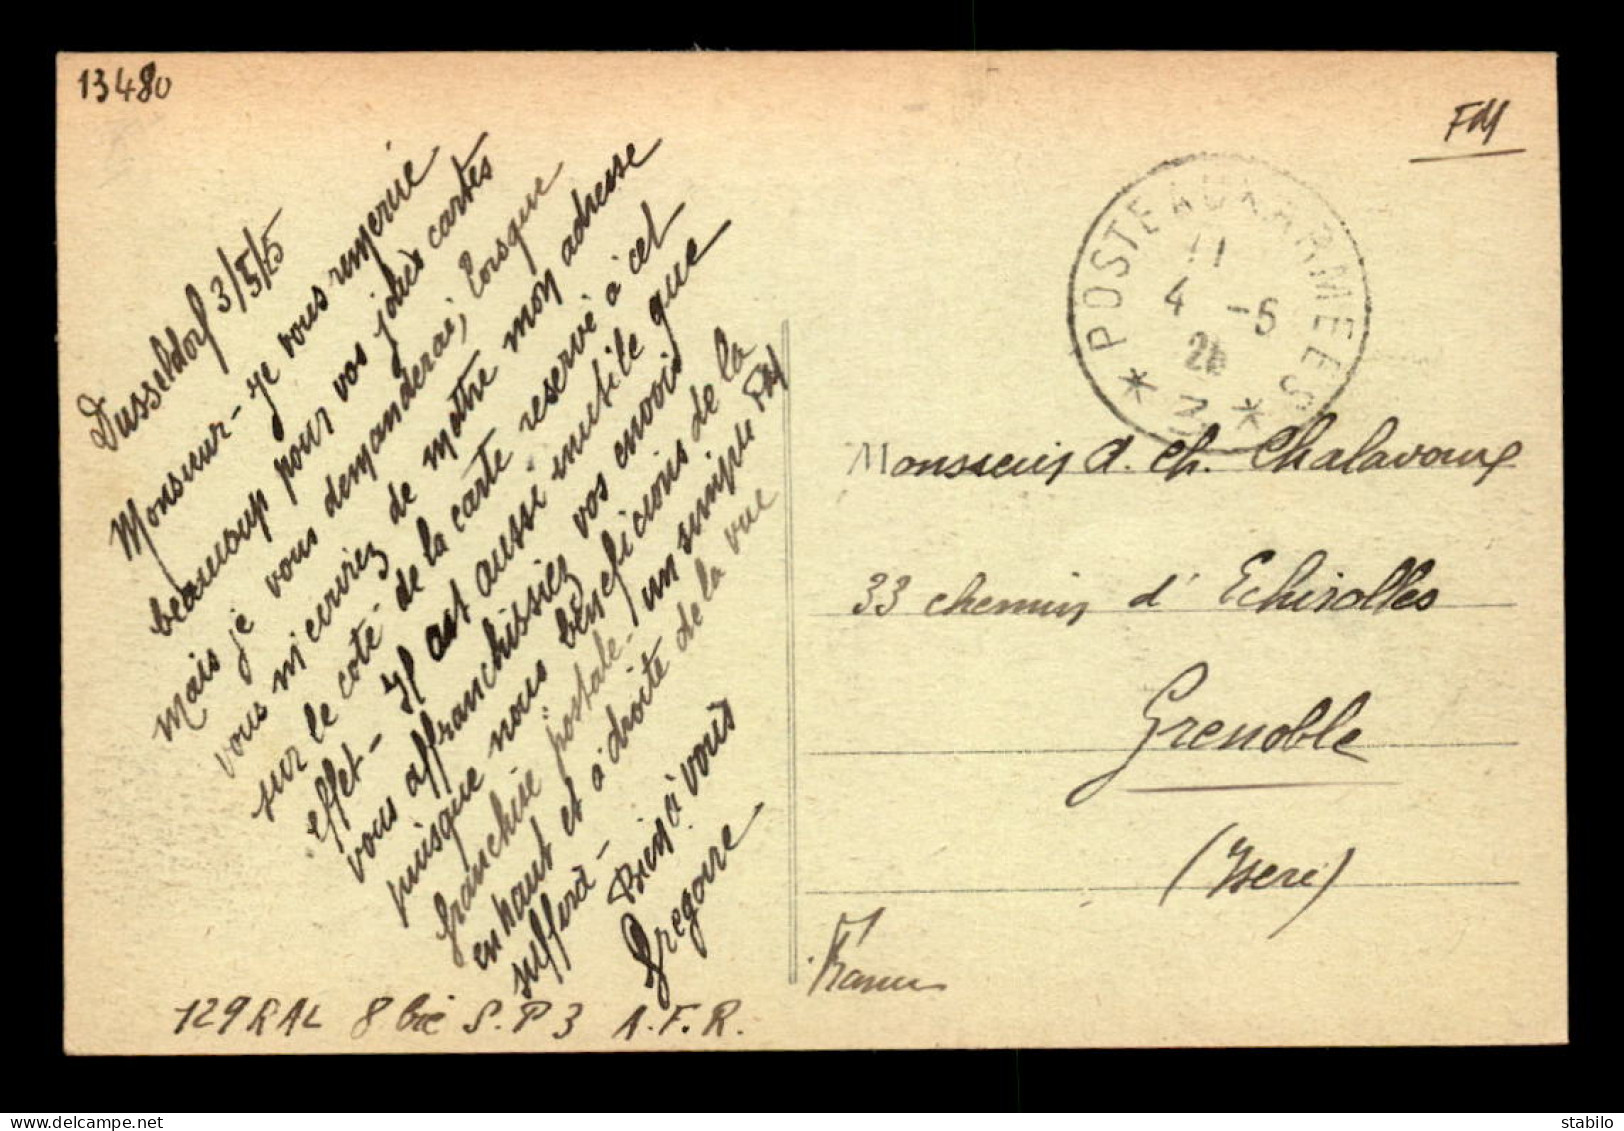 13480
FM
POSTE AUX ARMEES
11
4 -5
25
Dusseldorf 3/5/25
Monsieur - je vous remercie
beaucoup pour vos jolies cartes
mais je vous demanderai, lorsque
vous m'ecrirez de mettre mon adresse
sur le coté de la carte reservé à cet
effet - Il est aussi inutile que
vous affranchissiez vos envois
puisque nous beneficions de la
franchise postale - un simple FM
en haut et à droite de la vue
suffira -
Bien à vous
Gregoire
129 RAL 8 bie S.P 3 A.F.R.
Monsieur A. Ch. Chalavoux
33 chemin d'Echirolles
Grenoble
(Isere)
France
delcampe.net
stabilo